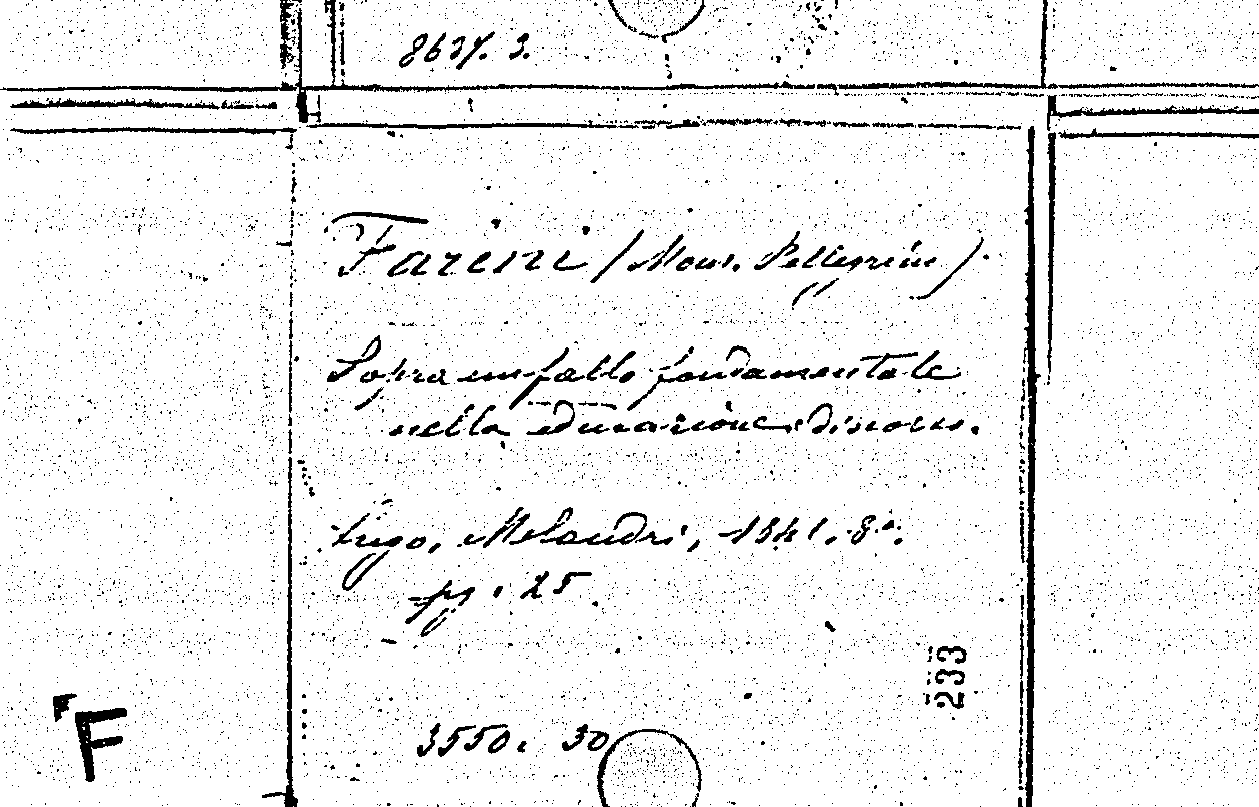 8637. 3.
Farini (Mons. Pellegrino).
Sopra un fallo fondamentale
nella educazione: discorso.
Lugo, Melandri, 1841. 8°.
pg. 25
233
3550. 30
F